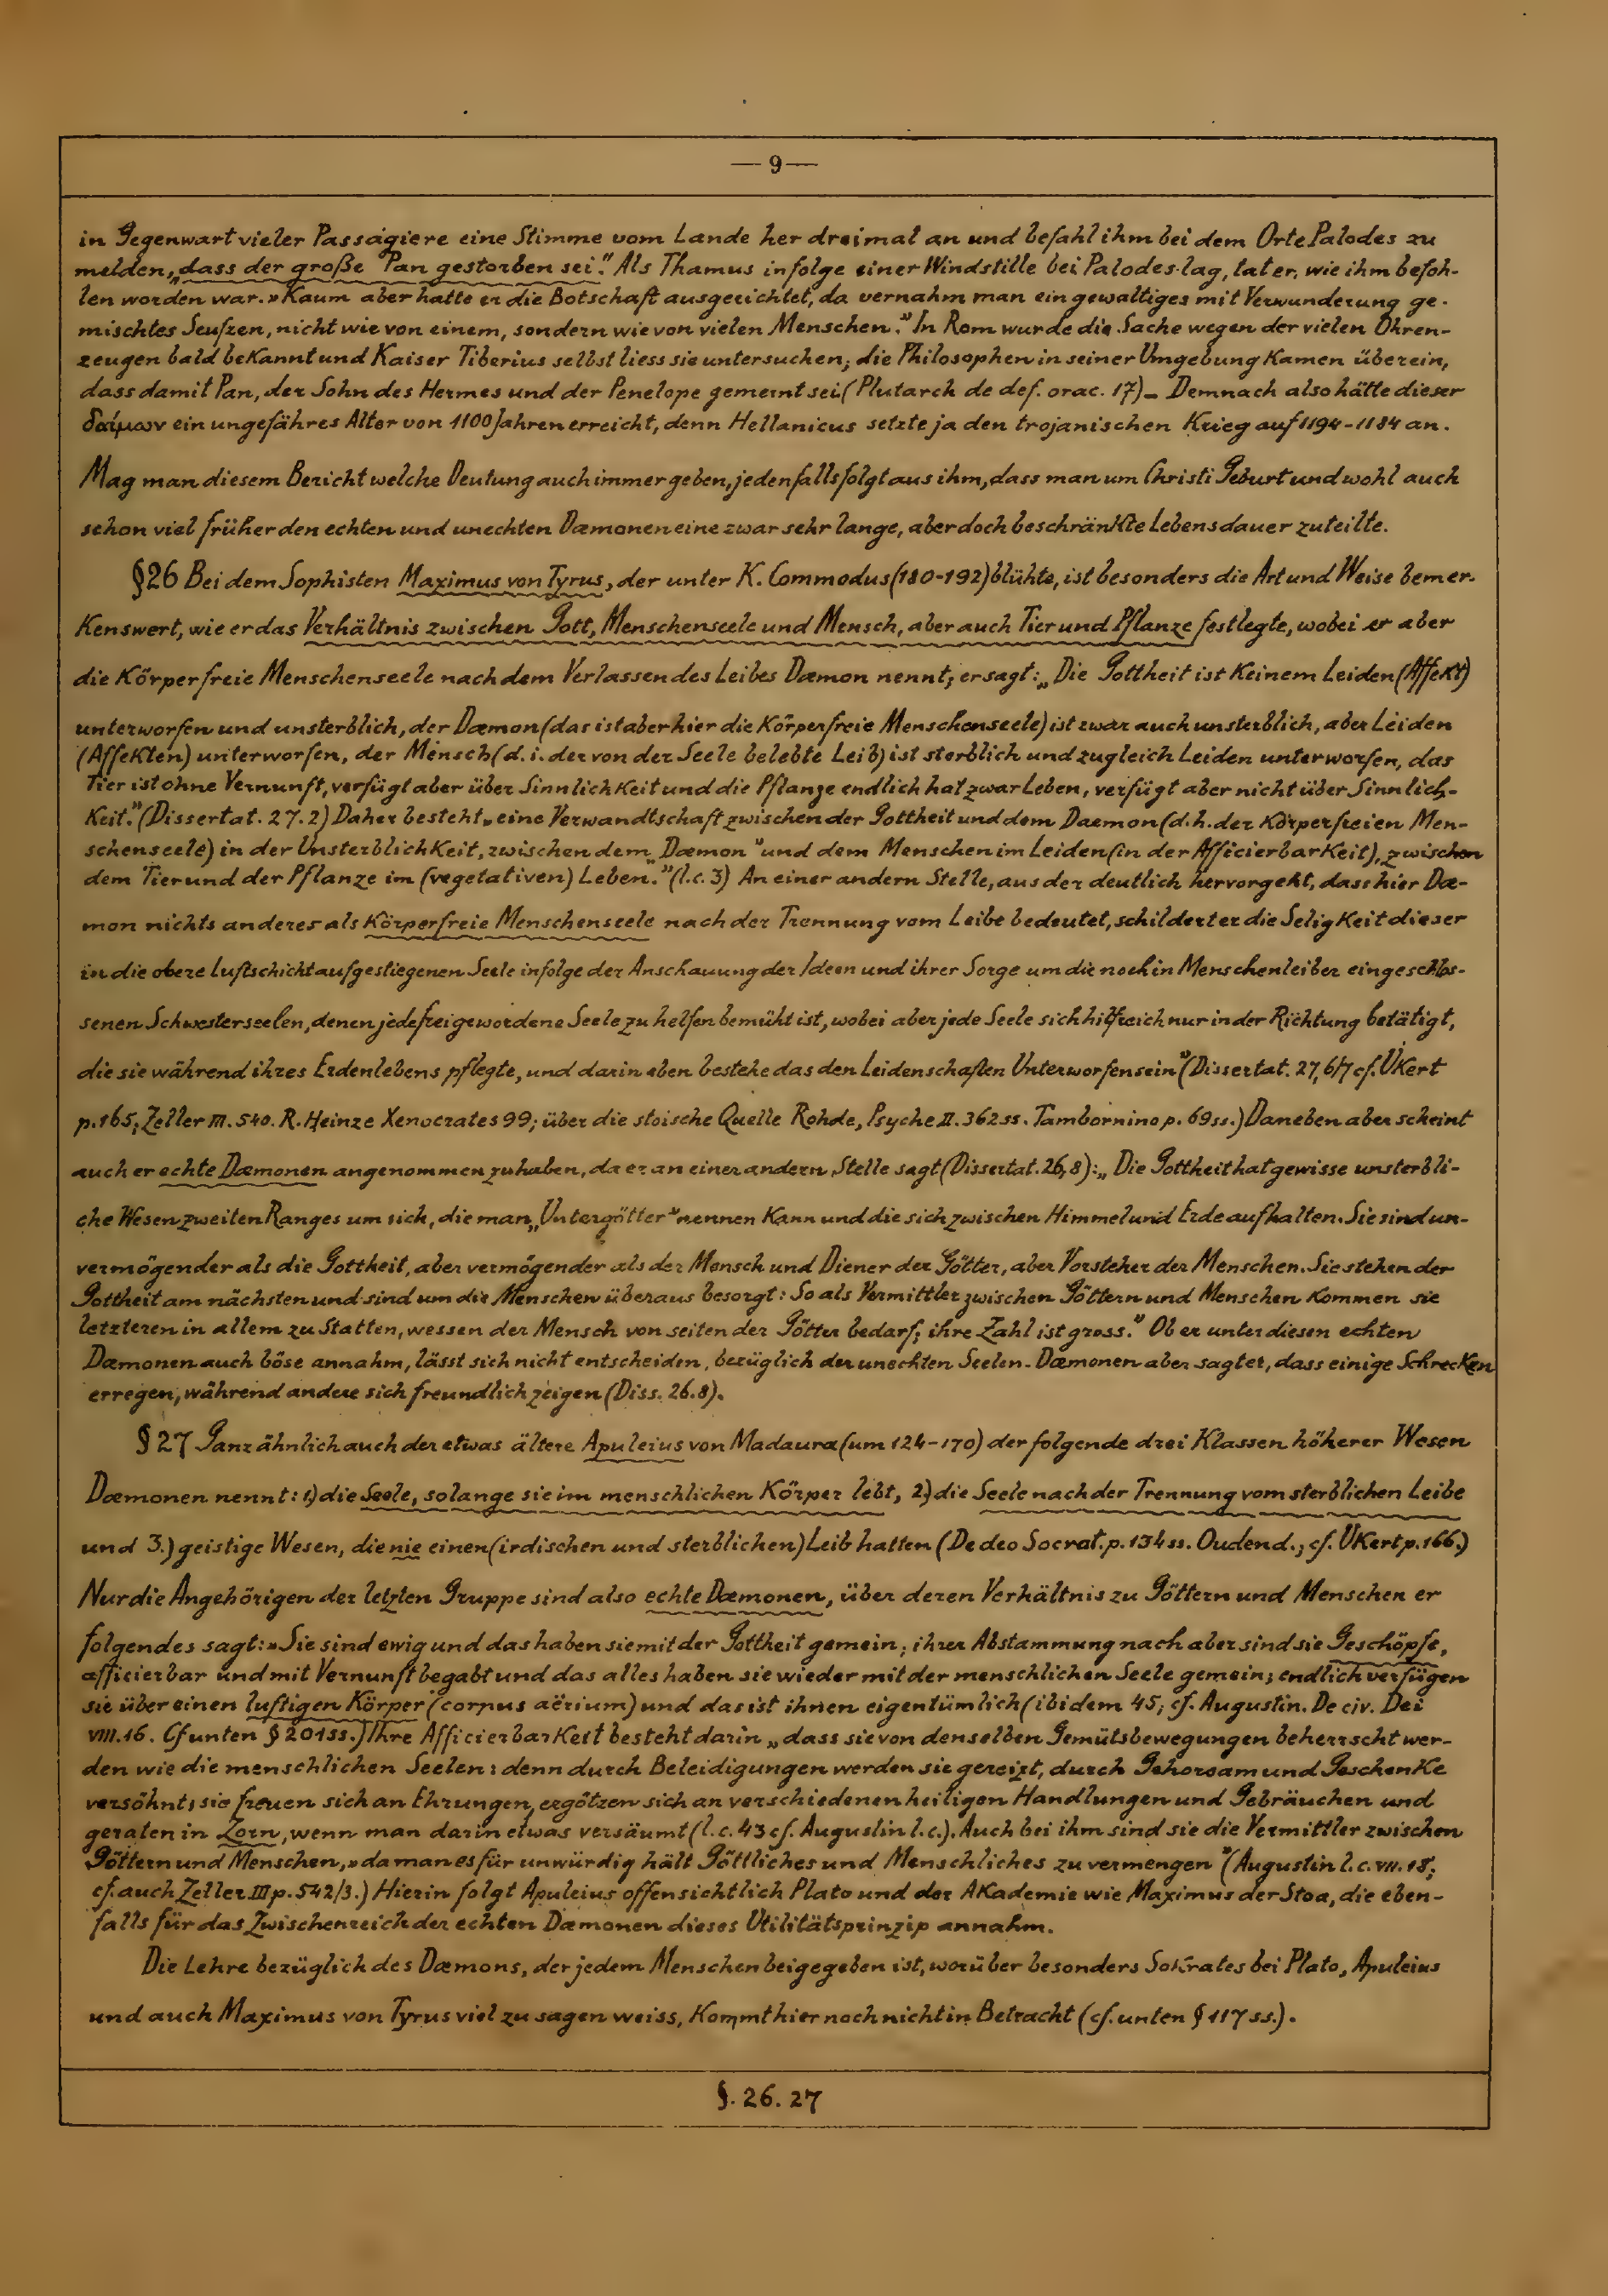 — 9 —
in Gegenwart vieler Passagiere eine Stimme vom Lande her dreimal an und befahl ihm bei dem Orte Palodes zu
melden, „dass der große Pan gestorben sei." Als Thamus infolge einer Windstille bei Palodes lag, tat er, wie ihm befoh-
len worden war. „Kaum aber hatte er die Botschaft ausgerichtet, da vernahm man ein gewaltiges mit Verwunderung ge-
mischtes Seufzen, nicht wie von einem, sondern wie von vielen Menschen." In Rom wurde die Sache wegen der vielen Ohren-
zeugen bald bekannt und Kaiser Tiberius selbst liess sie untersuchen; die Philosophen in seiner Umgebung kamen überein,
dass damit Pan, der Sohn des Hermes und der Penelope gemeint sei (Plutarch de def. orac. 17) – Demnach also hätte dieser
δαίμων ein ungefähres Alter von 1100 Jahren erreicht, denn Hellanicus setzte ja den trojanischen Krieg auf 1194-1184 an.
Mag man diesem Bericht welche Deutung auch immer geben, jedenfalls folgt aus ihm, dass man um Christi Geburt und wohl auch
schon viel früher den echten und unechten Dæmonen eine zwar sehr lange, aber doch beschränkte Lebensdauer zuteilte.
§26 Bei dem Sophisten Maximus von Tyrus, der unter K. Commodus (180-192) blühte, ist besonders die Art und Weise bemer-
kenswert, wie er das Verhältnis zwischen Gott, Menschenseele und Mensch, aber auch Tier und Pflanze festlegte, wobei er aber
die körperfreie Menschenseele nach dem Verlassen des Leibes Dæmon nennt; er sagt: „Die Gottheit ist keinem Leiden (Affekt)
unterworfen und unsterblich, der Dæmon (das ist aber hier die körperfreie Menschenseele) ist zwar auch unsterblich, aber Leiden
(Affekten) unterworfen, der Mensch (d. i. der von der Seele belebte Leib) ist sterblich und zugleich Leiden unterworfen, das
Tier ist ohne Vernunft, verfügt aber über Sinnlichkeit und die Pflanze endlich hat zwar Leben, verfügt aber nicht über Sinnlich-
keit." (Dissertat. 27. 2) Daher besteht „eine Verwandtschaft zwischen der Gottheit und dem Daemon (d. h. der körperfreien Men-
schenseele) in der Unsterblichkeit, zwischen dem „Dæmon" und dem Menschen im Leiden (in der Afficierbarkeit), zwischen
dem Tier und der Pflanze im (vegetativen) Leben." (l. c. 3) An einer andern Stelle, aus der deutlich hervorgeht, dass hier Dæ-
mon nichts anderes als körperfreie Menschenseele nach der Trennung vom Leibe bedeutet, schildert er die Seligkeit dieser
in die obere Luftschicht aufgestiegenen Seele infolge der Anschauung der Ideen und ihrer Sorge um die noch in Menschenleiber eingeschlos-
senen Schwesterseelen, denen jede freigewordene Seele zu helfen bemüht ist, wobei aber jede Seele sich hilfreich nur in der Richtung betätigt,
die sie während ihres Erdenlebens pflegte, und darin eben bestehe das den Leidenschaften Unterworfensein" (Dissertat. 27, 6/7 cf. Ukert
p. 165; Zeller III. 540. R. Heinze Xenocrates 99; über die stoische Quelle Rohde, Psyche II. 362 ss. Tambornino p. 69 ss.) Daneben aber scheint
auch er echte Dæmonen angenommen zu haben, da er an einer andern Stelle sagt (Dissertat. 26, 8): „Die Gottheit hat gewisse unsterbli-
che Wesen zweiten Ranges um sich, die man „Untergötter" nennen kann und die sich zwischen Himmel und Erde aufhalten. Sie sind un-
vermögender als die Gottheit, aber vermögender als der Mensch und Diener der Götter, aber Vorsteher der Menschen. Sie stehen der
Gottheit am nächsten und sind um die Menschen überaus besorgt: So als Vermittler zwischen Göttern und Menschen kommen sie
letzteren in allem zu Statten, wessen der Mensch von seiten der Götter bedarf; ihre Zahl ist gross." Ob er unter diesen echten
Dæmonen auch böse annahm, lässt sich nicht entscheiden, bezüglich der unechten Seelen-Dæmonen aber sagt er, dass einige Schrecken
erregen, während andere sich freundlich zeigen (Diss. 26. 8).
§27 Ganz ähnlich auch der etwas ältere Apuleius von Madaura (um 124-170) der folgende drei Klassen höherer Wesen
Dæmonen nennt: 1) die Seele, solange sie im menschlichen Körper lebt, 2.) die Seele nach der Trennung vom sterblichen Leibe
und 3.) geistige Wesen, die nie einen (irdischen und sterblichen) Leib hatten (De deo Socrat. p. 134 ss. Oudend.; cf. Ukert p. 166.)
Nur die Angehörigen der letzten Gruppe sind also echte Dæmonen, über deren Verhältnis zu Göttern und Menschen er
folgendes sagt: „Sie sind ewig und das haben sie mit der Gottheit gemein; ihrer Abstammung nach aber sind sie Geschöpfe,
afficierbar und mit Vernunft begabt und das alles haben sie wieder mit der menschlichen Seele gemein; endlich verfügen
sie über einen luftigen Körper (corpus aërium) und das ist ihnen eigentümlich (ibidem 45; cf. Augustin. De civ. Dei
VIII. 16. Cf unten § 201 ss.) Ihre Afficierbarkeit besteht darin „dass sie von denselben Gemütsbewegungen beherrscht wer-
den wie die menschlichen Seelen: denn durch Beleidigungen werden sie gereizt, durch Gehorsam und Geschenke
versöhnt; sie freuen sich an Ehrungen, ergötzen sich an verschiedenen heiligen Handlungen und Gebräuchen und
geraten in Zorn, wenn man darin etwas versäumt (l. c. 43 cf. Augustin l. c.). Auch bei ihm sind sie die Vermittler zwischen
Göttern und Menschen, „da man es für unwürdig hält Göttliches und Menschliches zu vermengen" (Augustin l. c. VIII. 18;
cf. auch Zeller III p. 542/3.) Hierin folgt Apuleius offensichtlich Plato und der Akademie wie Maximus der Stoa, die eben-
falls für das Zwischenreich der echten Dæmonen dieses Utilitätsprinzip annahm.
Die Lehre bezüglich des Dæmons, der jedem Menschen beigegeben ist, worüber besonders Sokrates bei Plato, Apuleius
und auch Maximus von Tyrus viel zu sagen weiss, kommt hier noch nicht in Betracht (cf. unten § 117 ss.).
§. 26. 27